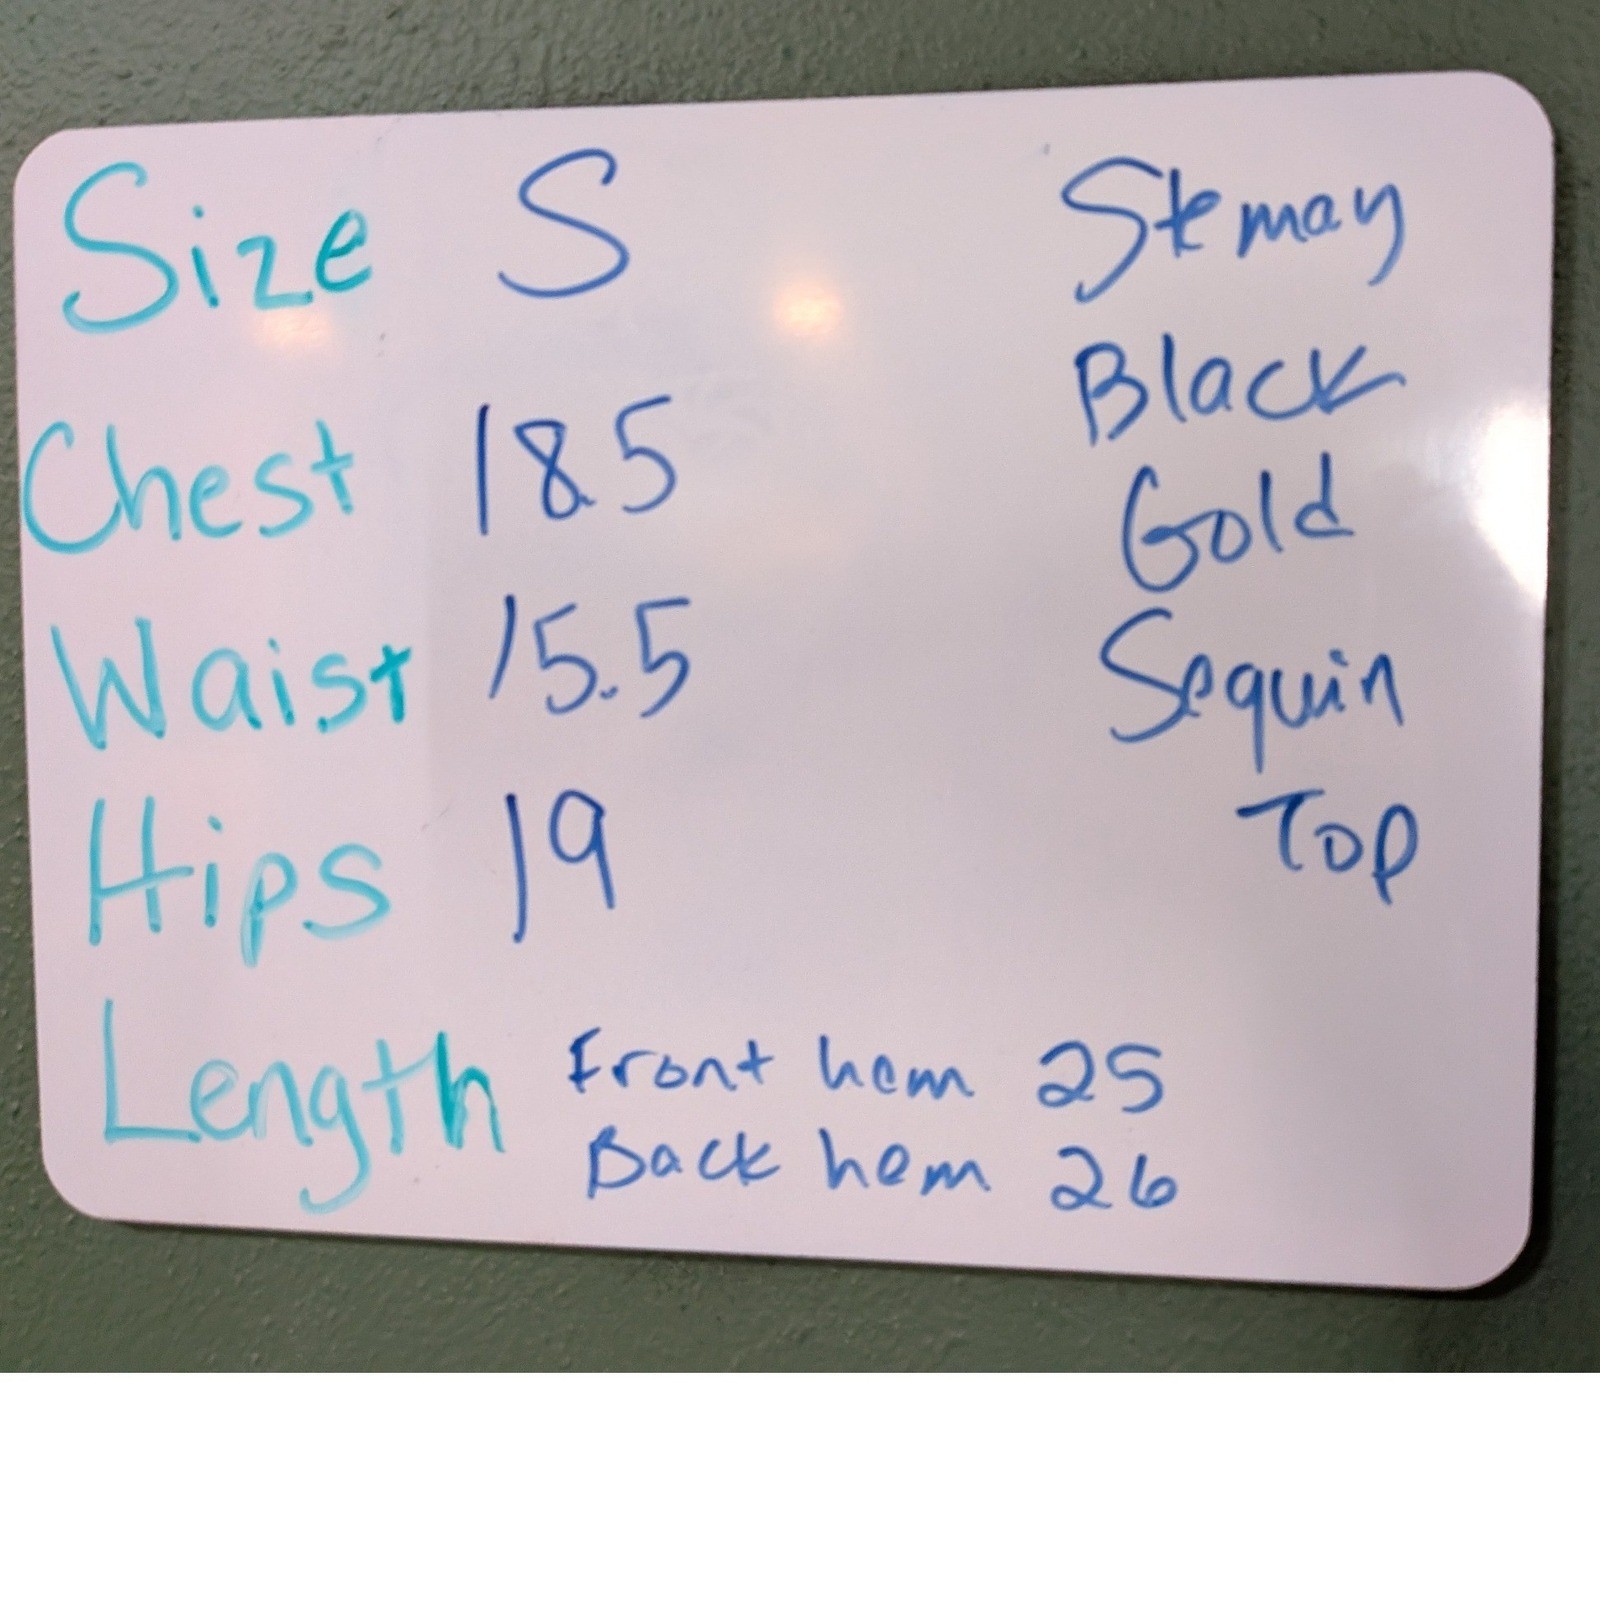 Size S
Chest 18.5
Waist 15.5
Hips 19
Length Front hem 25
Back hem 26
Stemay
Black
Gold
Sequin
Top